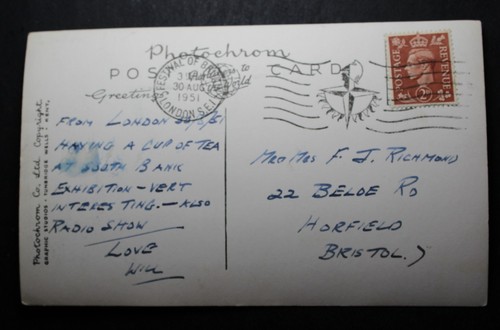 Photochrom
POST CARD
Greetings
FESTIVAL OF BRITAIN
30 AUG
1951
LONDON S.E.1
POSTAGE
REVENUE
2D
FROM LONDON
HAVING A CUP OF TEA
AT SOUTH BANK
EXHIBITION - VERT
INTERESTING. - ALSO
RADIO SHOW
LOVE
WILL
MR & MRS F. J. RICHMOND
22 BELOE RD
HORFIELD
BRISTOL. 7
Photochrom Co. Ltd. Copyright.
GRAPHIC STUDIOS · TUNBRIDGE WELLS · KENT.